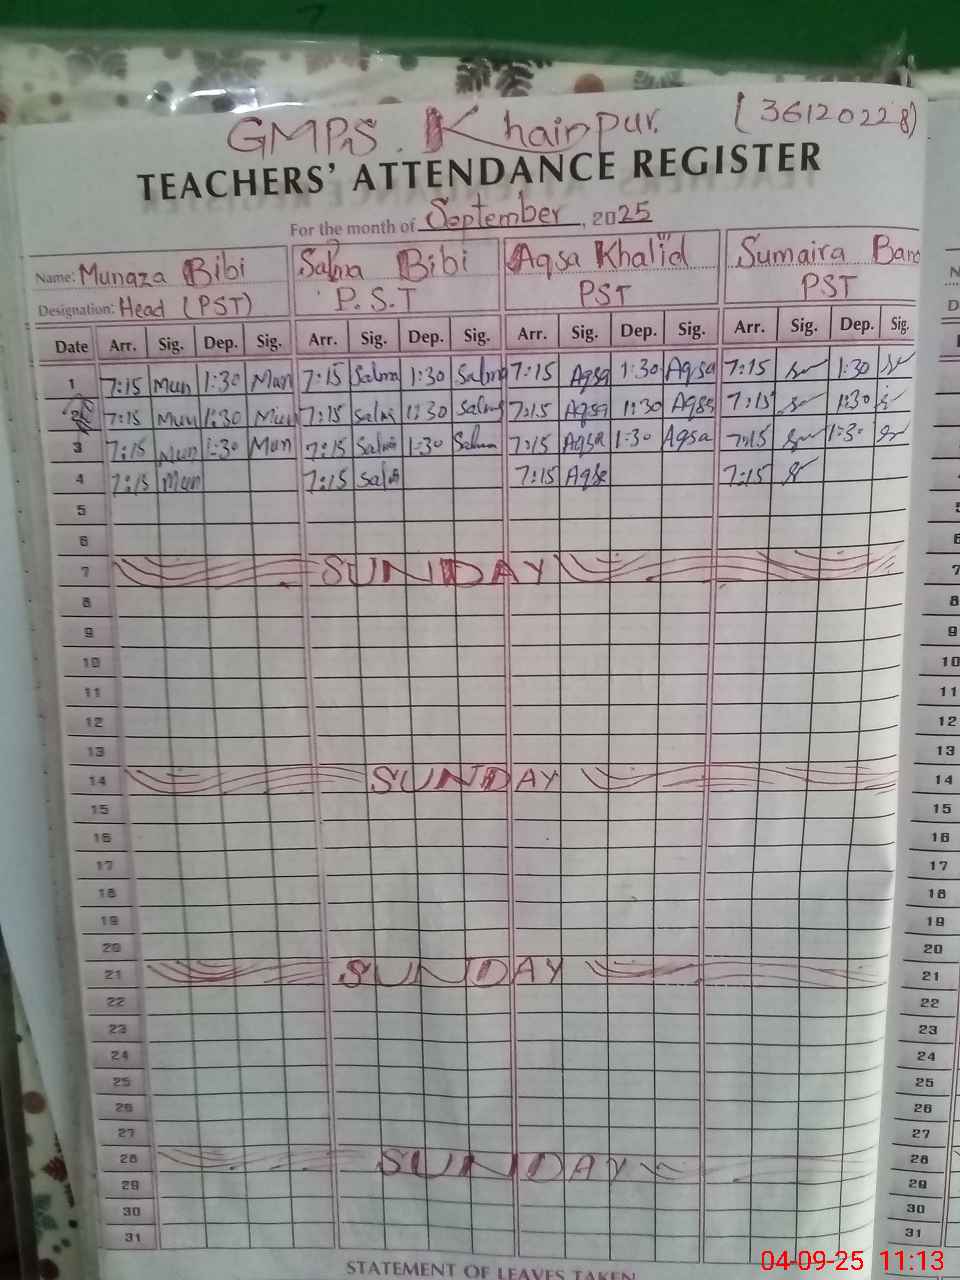 GMPS. Khairpur. (36120228)
TEACHERS' ATTENDANCE REGISTER
For the month of September, 2025
Name: Munaza Bibi Salma Bibi Aqsa Khalid Sumaira Bano
Designation: Head (PST) P.S.T PST PST
Date Arr. Sig. Dep. Sig. Arr. Sig. Dep. Sig. Arr. Sig. Dep. Sig. Arr. Sig. Dep. Sig.
1 7:15 Mun 1:30 Mun 7:15 Salma 1:30 Salma 7:15 Aqsa 1:30 Aqsa 7:15 1:30
2 7:15 Mun 1:30 Mun 7:15 Salma 1:30 Salma 7:15 Aqsa 1:30 Aqsa 7:15 1:30
3 7:15 Mun 1:30 Mun 7:15 Salma 1:30 Salma 7:15 Aqsa 1:30 Aqsa 7:15 1:30
4 7:15 Mun 7:15 Salma 7:15 Aqsa 7:15
5
6
7 SUNDAY 7
8 8
9 9
10 10
11 11
12 12
13 13
14 SUNDAY 14
15 15
16 16
17 17
18 18
19 19
20 20
21 SUNDAY 21
22 22
23 23
24 24
25 25
26 26
27 27
28 SUNDAY 28
29 29
30 30
31 31
STATEMENT OF LEAVES TAKEN
04-09-25 11:13